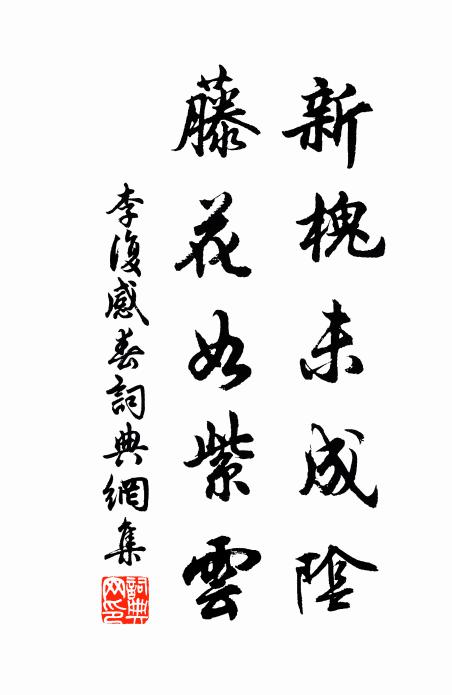 新槐未成陰
藤花如紫雲
李復感春詞典網集
詞典网印